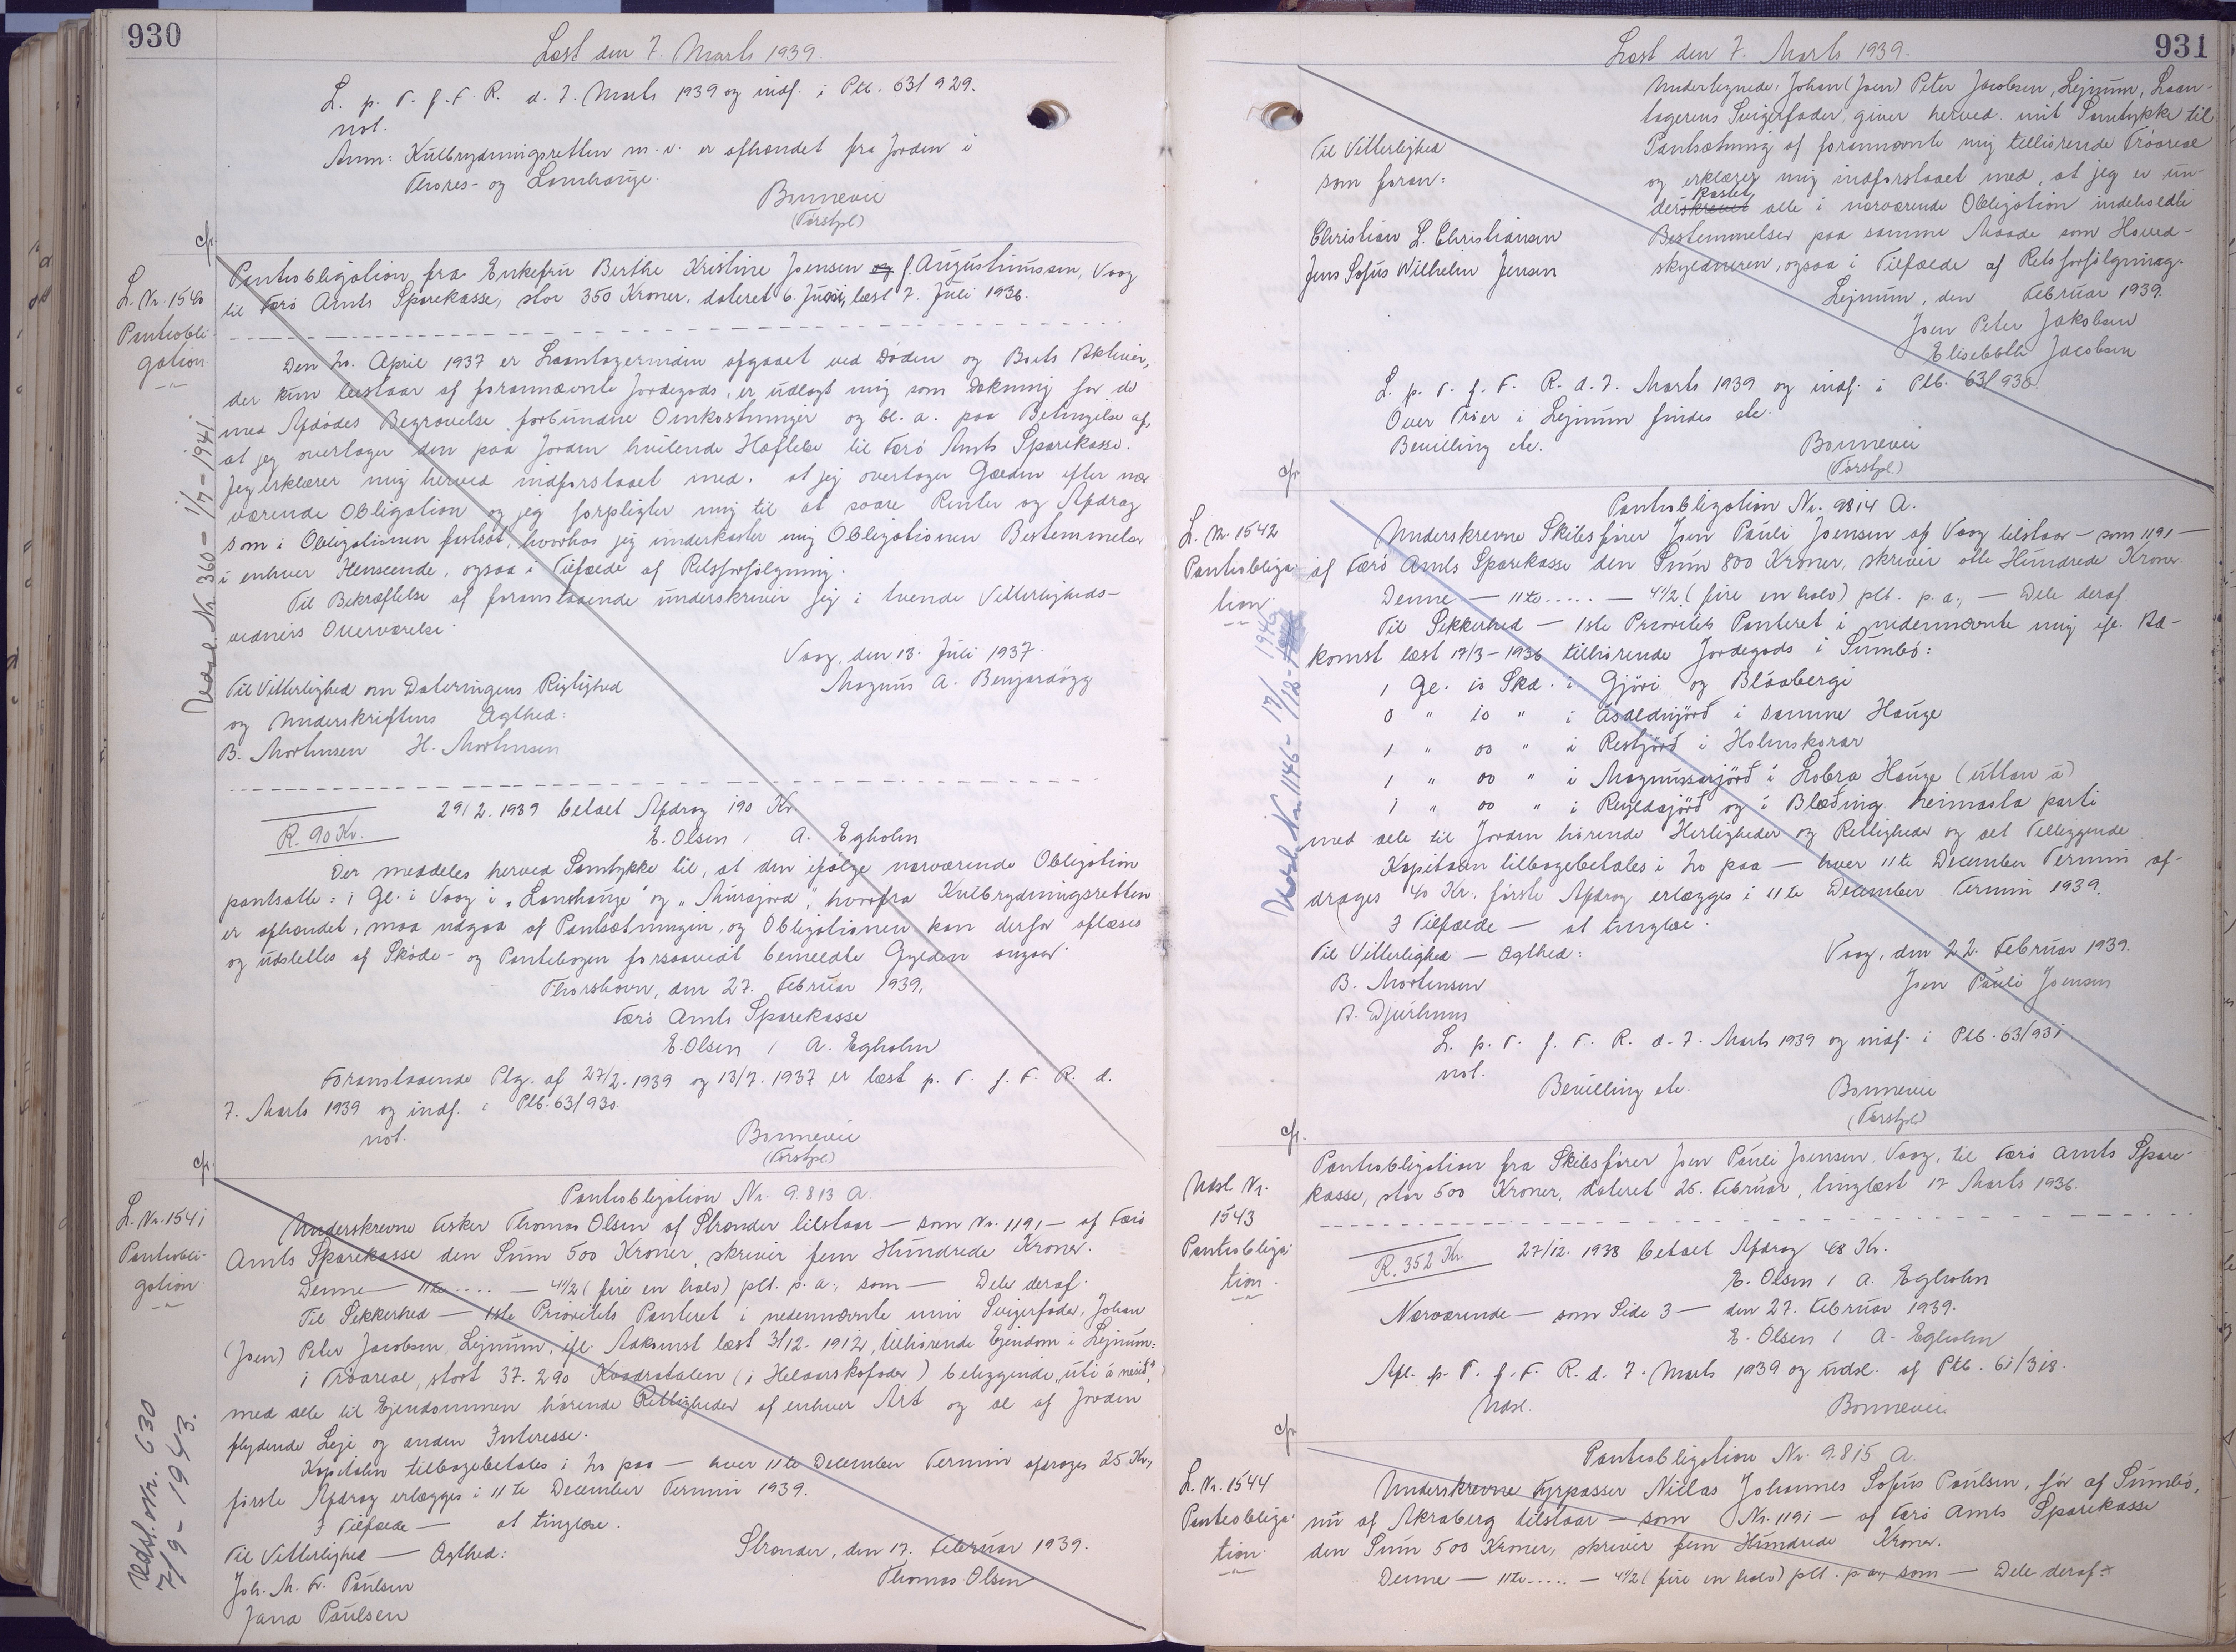 930
Læst den 7. Marts 1939.
L. p. T. f. F. R. d. 7. Marts 1939 og indf. i Ptb. 63/929.
not.
Anm: Kulbrydningsretten m. v. er afhændet fra Jorden i
Thores- og Lomhauge.
Bonnevie
(Færstpl)
cfr.
L. Nr. 1540
Pantobli-
gation
Udsl. Nr. 360 - 1/7 - 1941
Pantobligation fra Enkefru Berthe Kristine Joensen og f. Augustinussen, Vaag
til Færø Amts Sparekasse, stor 350 Kroner, dateret 6. Juni, læst 7. Juli 1936.
Den 20. April 1937 er Laantagerinden afgaaet ved Døden og Boets Aktiver,
der kun bestaar af forannævnte Jordegods, er udlagt mig som Dækning for de
med Afdødes Begravelse forbundne Omkostninger og bl. a. paa Betingelse af,
at jeg overtager den paa Jorden hvilende Hæftelse til Færø Amts Sparekasse.
Jeg erklærer mig herved indforstaaet med, at jeg overtager Gælden efter nær
værende Obligation og jeg forpligter mig til at svare Renter og Afdrag
som i Obligationen fastsat, hvorhos jeg underkaster mig Obligationen Bestemmelser
i enhver Henseende, ogsaa i Tilfælde af Retsforfølgning.
Til Bekræftelse af foranstaaende underskriver jeg i tvende Vitterligheds-
vidners Overværelse.
Vaag, den 13. Juli 1937.
Til Vitterlighed om Dateringens Rigtighed
Magnus A. Benjardsøgg
og Underskriftens Ægthed:
B. Mortensen H. Mortensen
29/2. 1939 betalt Afdrag 190 Kr.
R. 90 Kr.
E. Olsen / A. Egholm
Der meddeles herved Samtykke til, at den ifølge nærværende Obligation
pantsatte: 1 Gl. i Vaag i "Lomhauge" og "Murajord", hvorfra Kulbrydningsretten
er afhændet, maa udgaa af Pantsætningen, og Obligationen kan derfor aflæses
og udslettes af Skøde- og Pantebogen forsaavidt bemeldte Gylden angaar.
Thorshavn, den 27. Februar 1939.
Færø Amts Sparekasse
E. Olsen / A. Egholm
Foranstaaende Ptg. af 27/2. 1939 og 13/7. 1937 er læst p. T. f. F. R. d.
7. Marts 1939 og indf. i Ptb. 63/930.
not.
Bonnevie
(Færstpl)
cfr.
L. Nr. 1541
Pantobli-
gation
Udsl. Nr. 630
7/9 - 1943.
Pantobligation Nr. 9.813 A.
Underskrevne Fisker Thomas Olsen af Strander tilstaar — som Nr. 1191 — af Færø
Amts Sparekasse den Sum 500 Kroner, skriver fem Hundrede Kroner.
Denne — 11te ..... — 4 1/2 (fire en halv) pCt. p. a., som — Dele deraf.
Til Sikkerhed — 1ste Prioritets Panteret i nedennævnte min Svigerfader, Johan
(Joen) Peter Jacobsen, Lejnum, ifl. Adkomst læst 3/12. 1912, tilhørende Ejendom i Lejnum:
i Tróareal, stort 37.290 Kvadratalen (i Helvarskofader) beliggende "úti á neið",
med alle til Ejendommen hørende Rettigheder af enhver Art og al af Jorden
flydende Leje og anden Interesse.
Kapitalen tilbagebetales i No paa — hver 11te December Termin afdrages 25 Kr.,
første Afdrag erlægges i 11te December Termin 1939.
I Tilfælde — at tinglæse.
Til Vitterlighed — Ægthed:
Strander, den 17. Februar 1939.
Joh. M. Fr. Poulsen
Thomas Olsen
Jana Poulsen
931
Læst den 7. Marts 1939.
Undertegnede, Johan (Joen) Peter Jacobsen, Lejnum, Laan-
tagerens Svigerfader, giver herved mit Samtykke til
Pantsætning af forannævnte mig tilhørende Tróareal
og erklærer mig indforstaaet med, at jeg er un-
kastet
derskrevet alle i nærværende Obligation indeholdte
Bestemmelser paa samme Maade som Hoved-
skyldneren, ogsaa i Tilfælde af Retsforfølgning.
Til Vitterlighed
som foran:
Christian L. Christiansen
Jens Sofus Wilhelm Jensen
Lejnum, den Februar 1939.
Joen Peter Jakobsen
Elisebbth Jacobsen
L. p. T. f. F. R. d. 7. Marts 1939 og indf. i Ptb. 63/930.
Over Tróer i Lejnum findes etc.
Bevilling etc.
Bonnevie
(Færstpl.)
cfr.
L. Nr. 1542
Pantobliga-
tion
Udsl. Nr. 1146 - 17/12 - 1946
Pantobligation Nr. 9814 A.
Underskrevne Skibsfører Joen Pauli Joensen af Vaag tilstaar — som 1191 —
af Færø Amts Sparekasse den Sum 800 Kroner, skriver otte Hundrede Kroner.
Denne — 11te ..... — 4 1/2 (fire en halv) pCt. p. a., — Dele deraf.
Til Sikkerhed — 1ste Prioritets Panteret i nedennævnte mig ifl. Ad-
komst læst 17/3-1936 tilhørende Jordegods i Sumbø:
1 Gl. 10 Skd. i Gjóri og Blóabergi
0 " 10 " i Ásaldnjörð i samme Hauge
1 " 00 " i Restjörð i Holmskorar
1 " 00 " i Magnussarjörð i Lobra Hauge (uttan á)
1 " 00 " i Regldajörð og i Blæðing heimasta parti
med alle til Jorden hørende Herligheder og Rettigheder og alt Tilliggende.
Kapitalen tilbagebetales i No paa — hver 11te December Termin af-
drages 40 Kr., første Afdrag erlægges i 11te December Termin 1939.
I Tilfælde — at tinglæse.
Til Vitterlighed — Ægthed:
Vaag, den 22. Februar 1939.
B. Mortensen
Joen Pauli Joensen
A. Djurhuus
L. p. T. f. F. R. d. 7. Marts 1939 og indf. i Ptb. 63/931
not.
Bevilling etc.
Bonnevie
(Færstpl)
cfr.
Udsl. Nr.
1543
Pantobliga-
tion.
Pantobligation fra Skibsfører Joen Pauli Joensen, Vaag, til Færø Amts Spare-
kasse, stor 500 Kroner, dateret 25. Februar, tinglæst 17 Marts 1936.
R. 352 Kr.
27/12. 1938 betalt Afdrag 48 Kr.
E. Olsen / A. Egholm
Nærværende — som Side 3 — den 27. Februar 1939.
E. Olsen / A. Egholm
Afl. p. T. f. F. R. d. 7. Marts 1939 og udsl. af Ptb. 61/318.
Udsl.
Bonnevie
cfr.
L. Nr. 1544
Pantobliga-
tion
Pantobligation Nr. 9.815 A.
Underskrevne Fyrpasser Niclas Johannes Sofus Poulsen, før af Sumbø,
nu af Akraberg tilstaar — som Nr. 1191 — af Færø Amts Sparekasse
den Sum 500 Kroner, skriver fem Hundrede Kroner.
Denne — 11te ..... — 4 1/2 (fire en halv) pCt. p. a., som — Dele deraf.